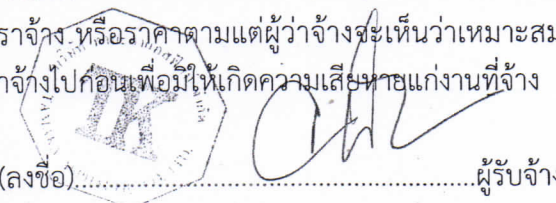 ราจ้าง หรือราคาตามแต่ผู้ว่าจ้างจะเห็นว่าเหมาะสม
าจ้างไปก่อนเพื่อมิให้เกิดความเสียหายแก่งานที่จ้าง
TK
(ลงชื่อ)....................................................ผู้รับจ้าง